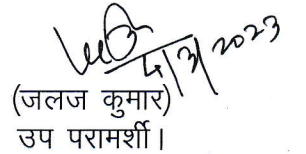 5/3/2023
(जलज कुमार)
उप परामर्शी।